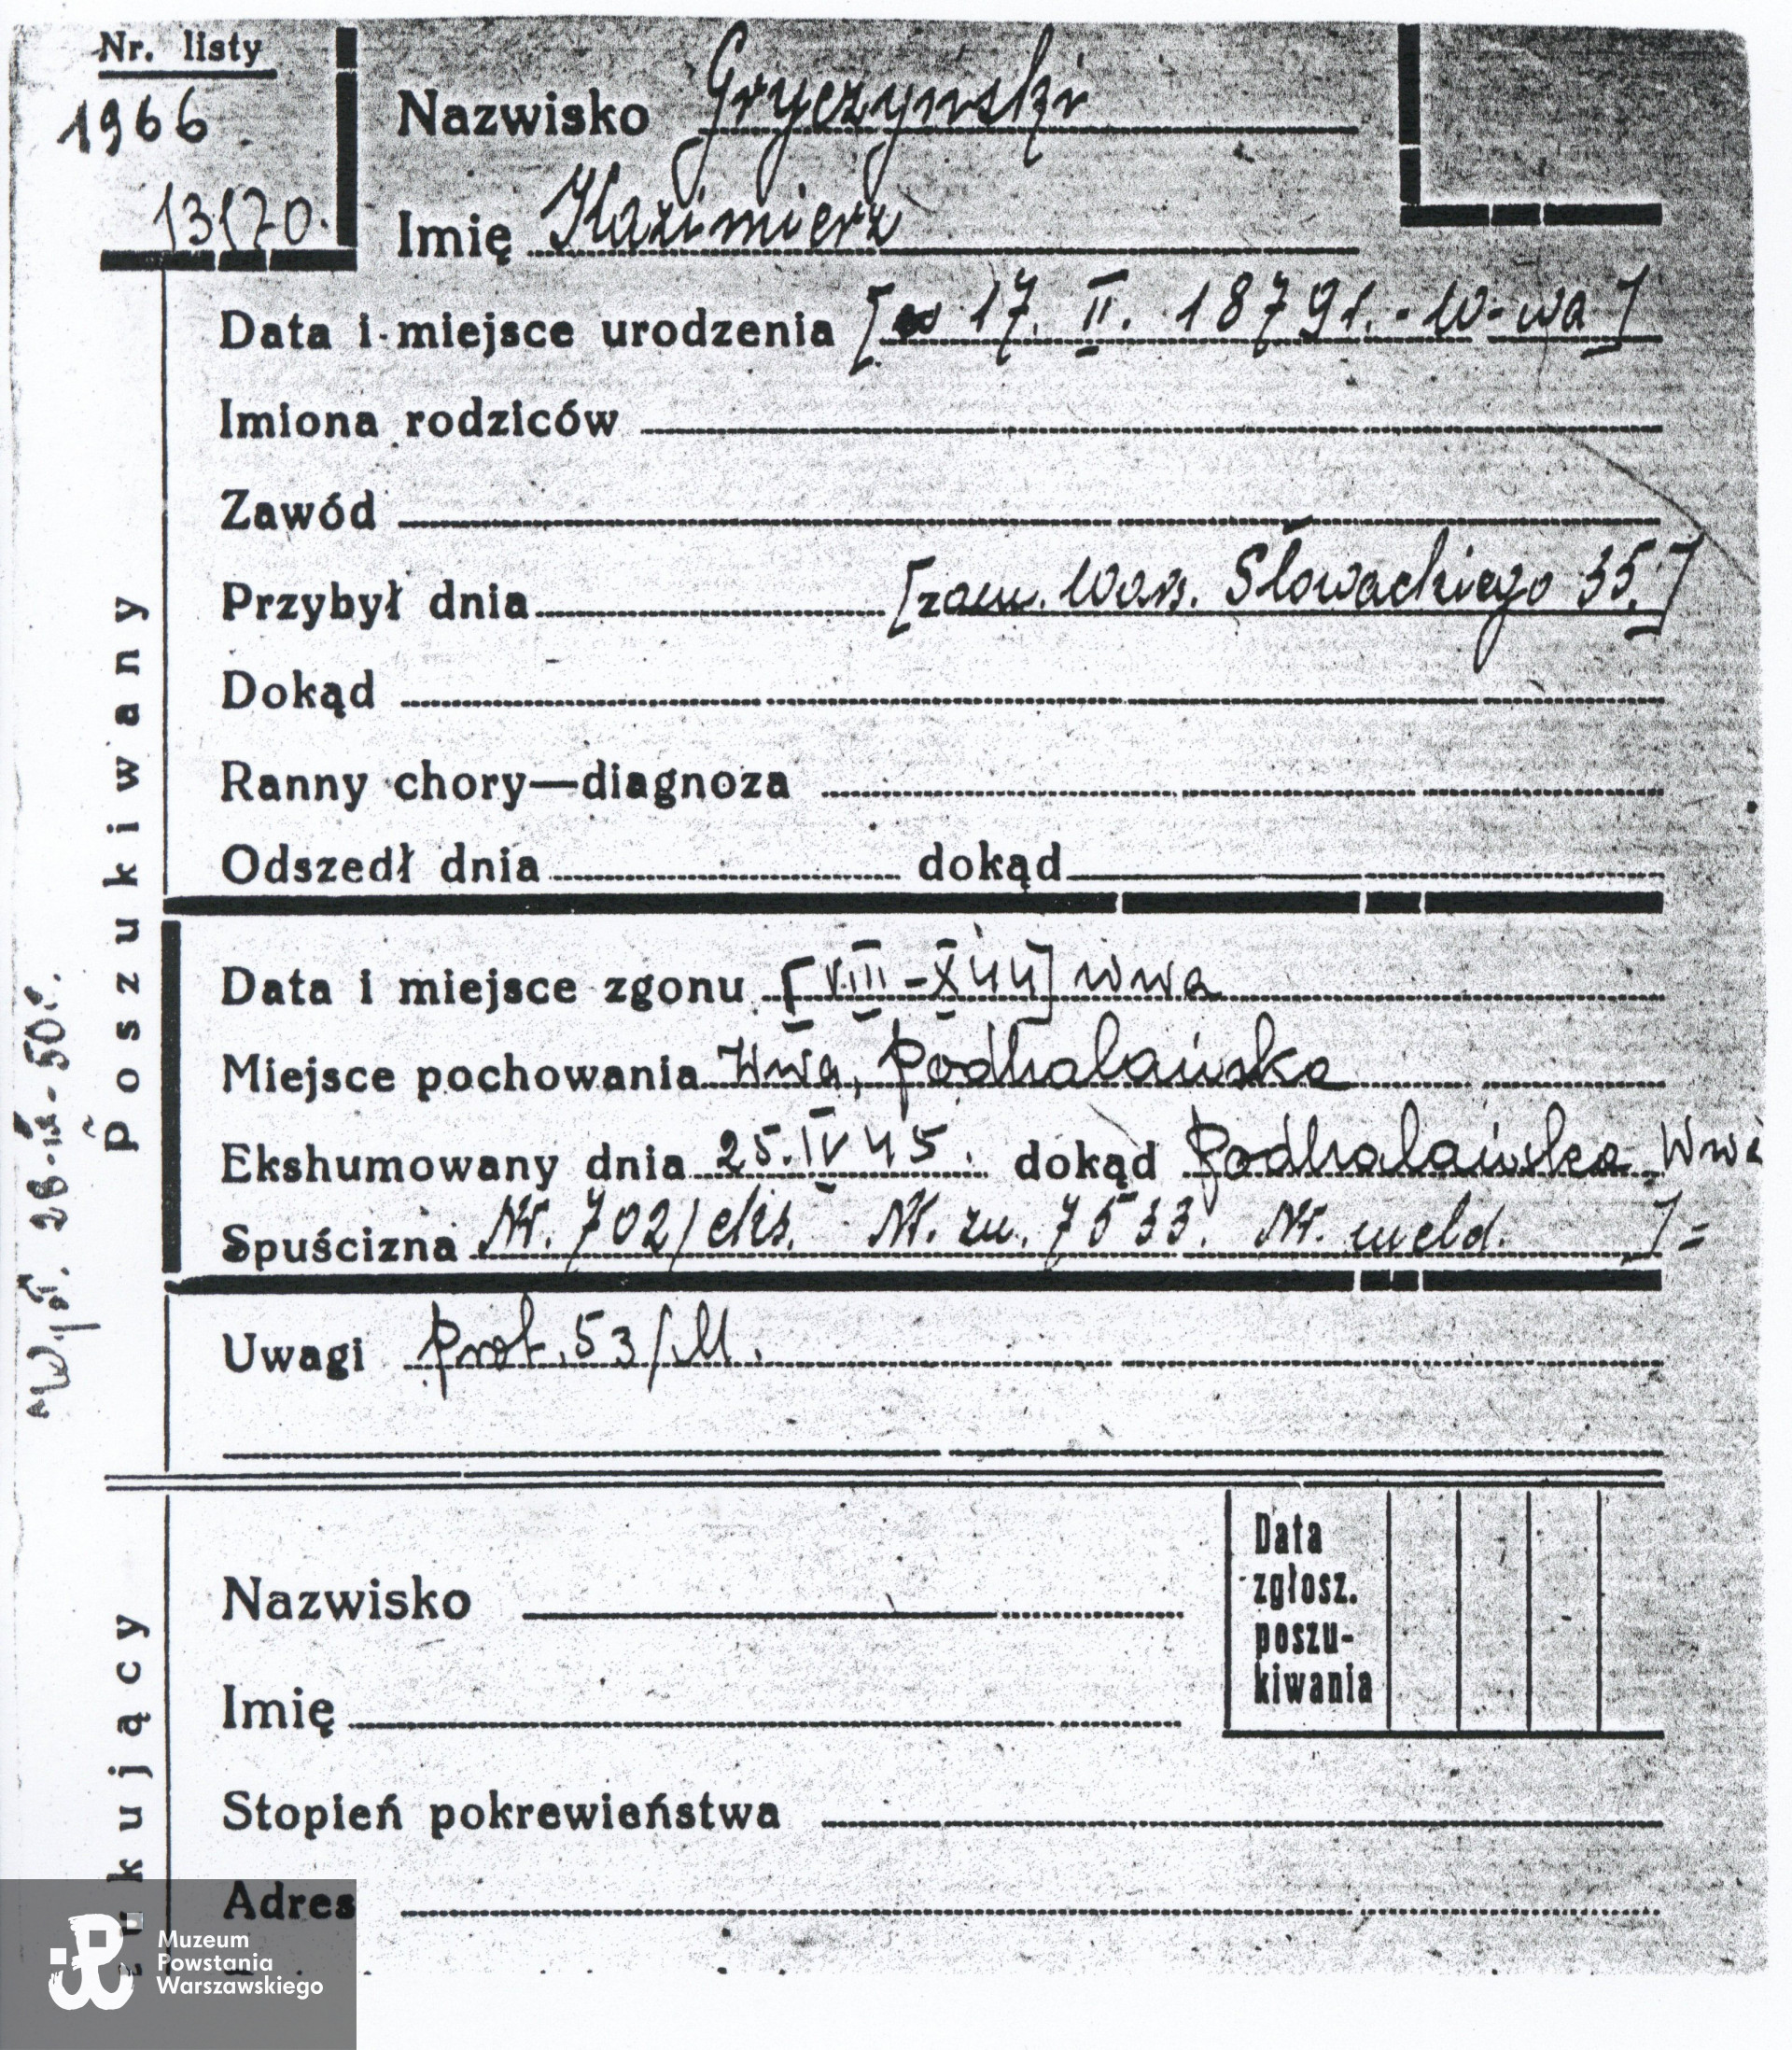 Nr. listy
1966
13170.
Nazwisko Gryczyński
Imię Kazimierz
Data i miejsce urodzenia [17. II. 1879 r. - W-wa]
Imiona rodziców
Zawód
Przybył dnia [zam. Wars. Słowackiego 35.]
Dokąd
Ranny chory—diagnoza
Odszedł dnia dokąd
Data i miejsce zgonu [VIII-X 44] Wwa
Miejsce pochowania Wwa, Podhalańska
Ekshumowany dnia 25.IV 45. dokąd Podhalańska Wwa
Spuścizna Nr. 702/eks. Nr. zn. 7533. Nr. meld. ]=
Uwagi Prot. 53/M.
Poszukiwany
Wyp. 28-IX-50r.
Nazwisko
Imię
Stopień pokrewieństwa
Adres
Data
zgłosz.
poszu-
kiwania
ukujący
Muzeum
Powstania
Warszawskiego